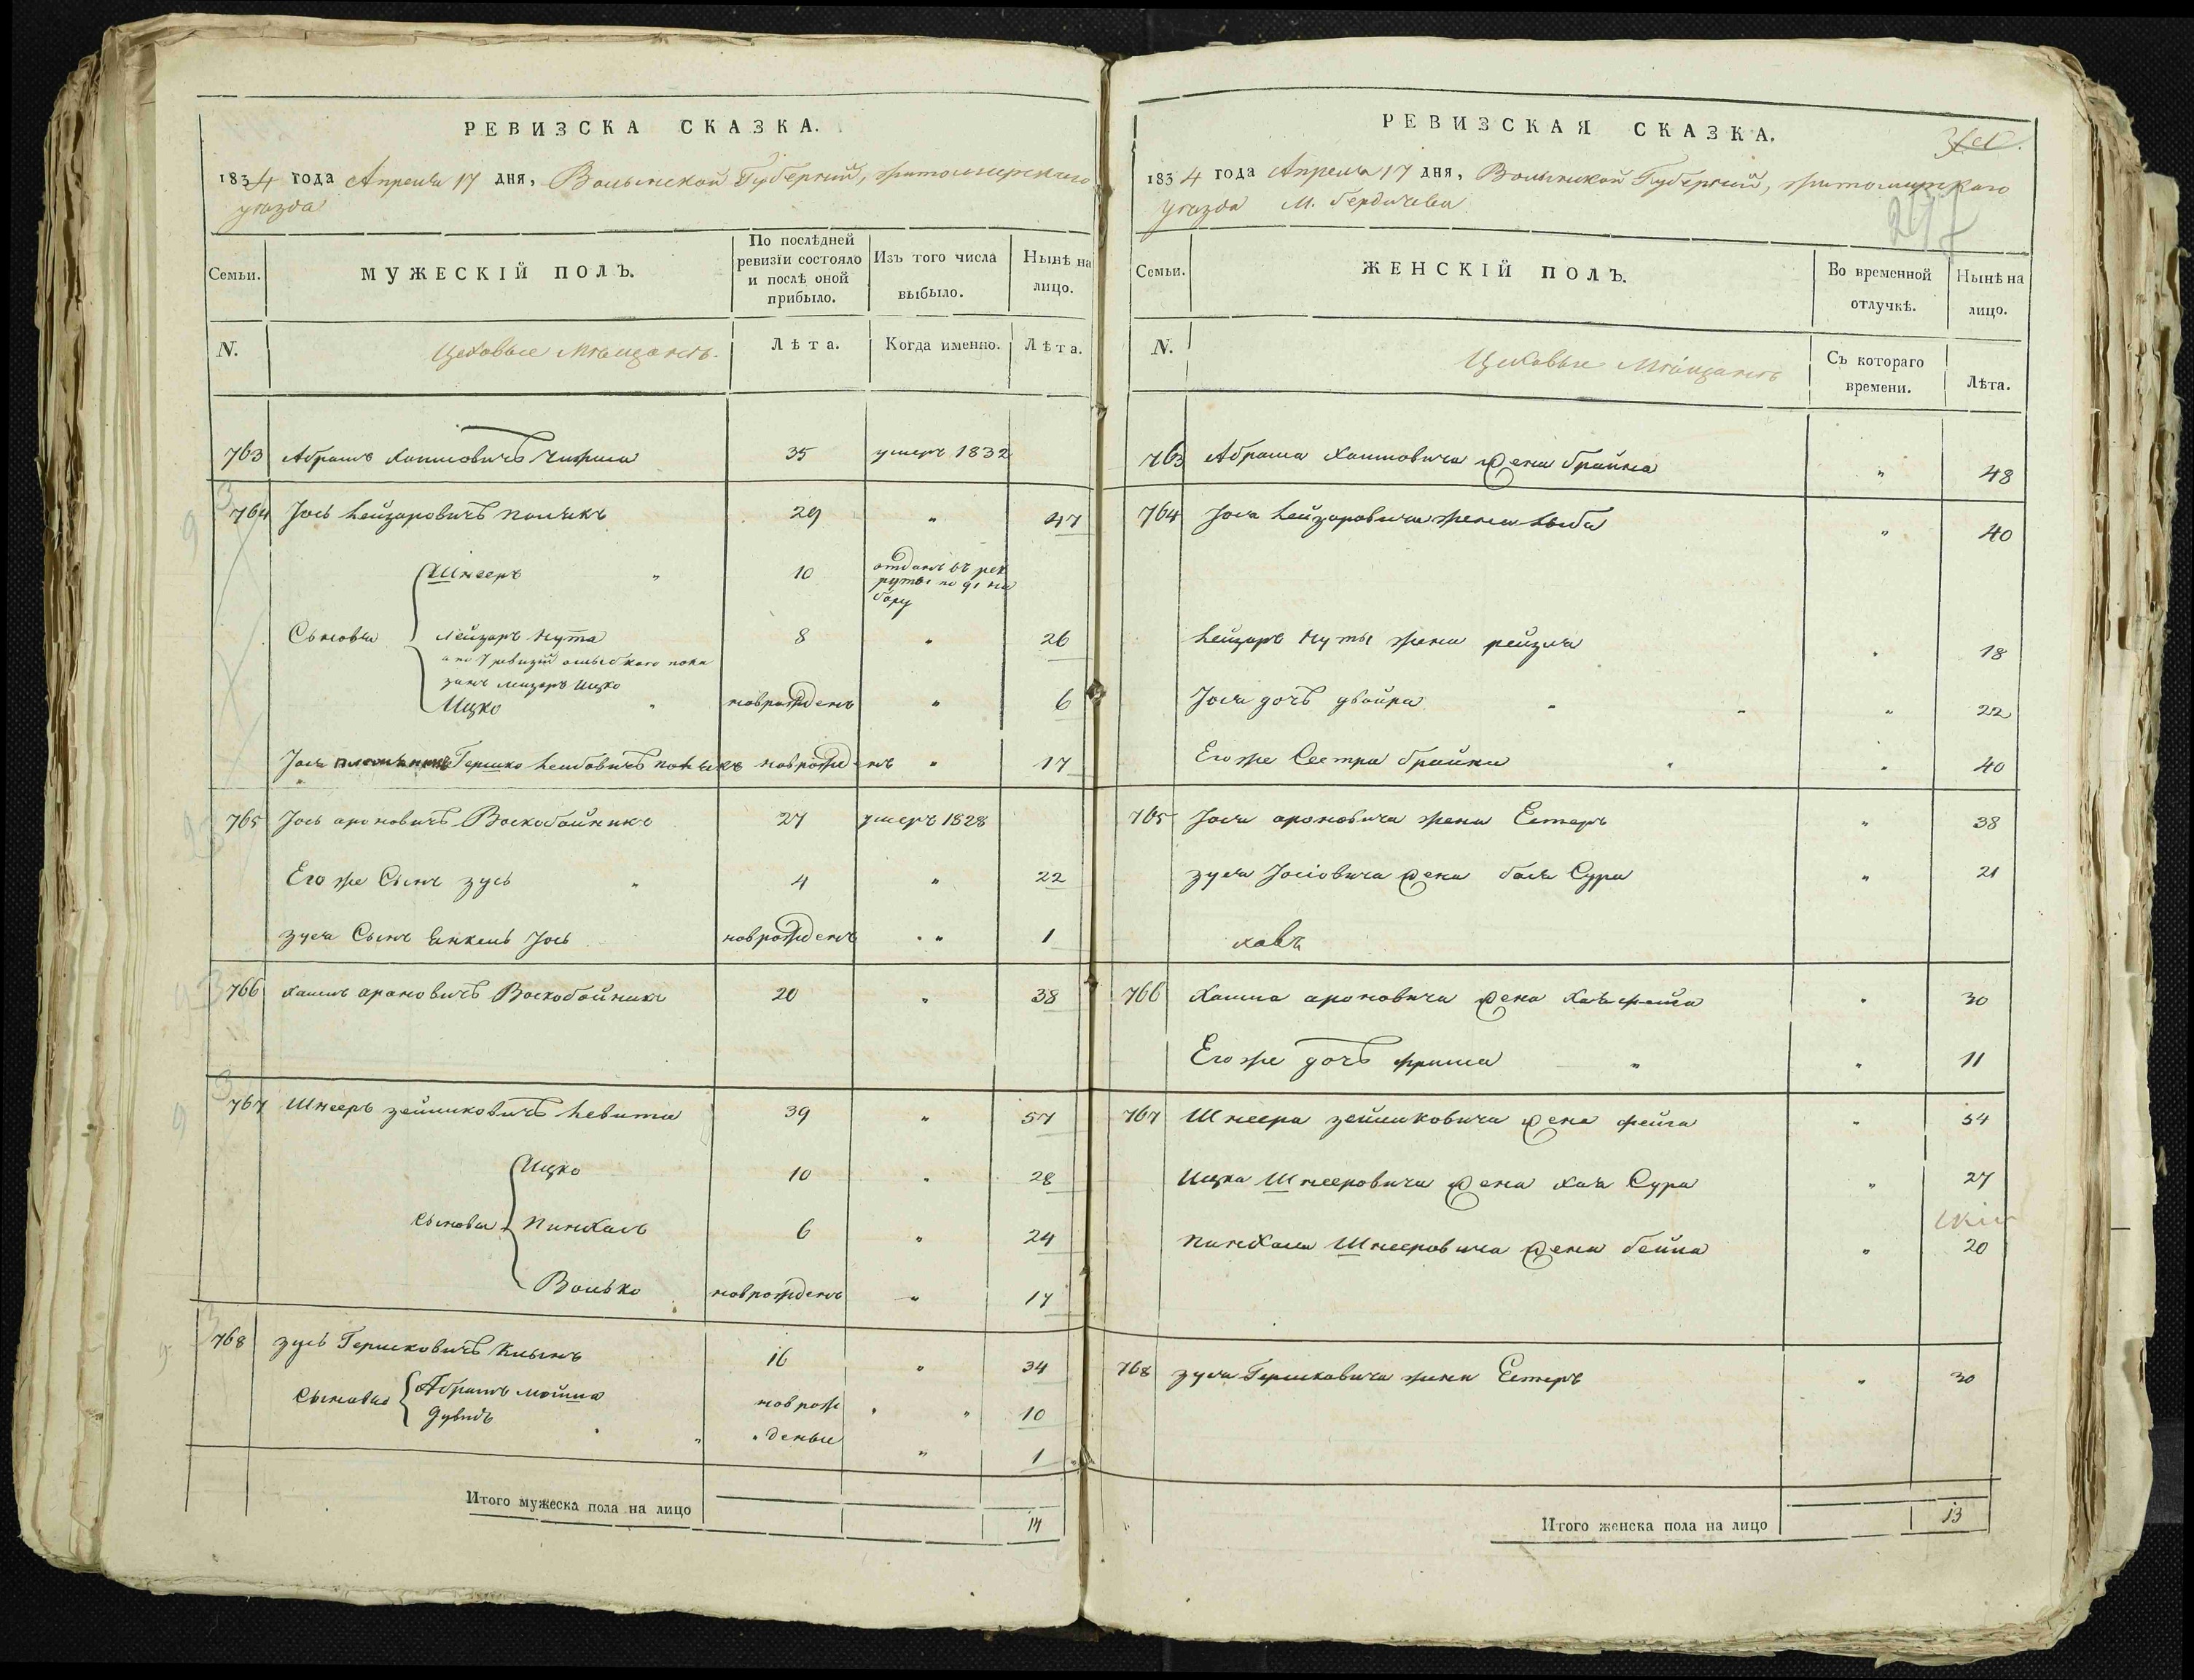 РЕВИЗСКА СКАЗКА.
1834 года Апреля 17 дня, Волынской Губерніи, Житомирскаго
уѣзда
Семьи.
МУЖЕСКІЙ ПОЛЪ.
По послѣдней ревизіи состояло и послѣ оной прибыло.
Изъ того числа выбыло.
Нынѣ на лицо.
N.
Цеховые Мѣщанѣ.
Лѣта.
Когда именно.
Лѣта.
763 Абрамъ Хаимовичъ 35 умеръ 1832
764 Іось Лейзаровичъ Полякъ 29 " 47
Шнееръ " 10 отданъ въ рек
руты по 91 на
бору
Сыновья Лейзоръ Нута 8 " 26
а по 7 ревизіи ошибкою пока
занъ Лейзоръ Ицко
Ицко " новорожденъ " 6
Іося племянникъ Гершко Лейбовичъ Полякъ новорожденъ " 17
765 Іось ароновичъ Воскобойникъ 27 умеръ 1828
Его же Сынъ зусь " 4 " 22
зуся Сынъ Янкель Іось новорожденъ " 1
766 хаимъ ароновичъ Воскобойникъ 20 " 38
767 Шнееръ зейликовичъ Левита 39 " 57
Ицко 10 " 28
Сыновья Пинхасъ 6 " 24
Волько новорожденъ " 17
768 зусь Гершковичъ 16 " 34
Сыновья Абрамъ мошка новрож " " 10
Дувидъ " деные " 1
Итого мужеска пола на лицо 14
РЕВИЗСКАЯ СКАЗКА.
1834 года Апреля 17 дня, Волынской Губерніи, Житомирскаго
уѣзда М. Бердичева
Семьи.
ЖЕНСКІЙ ПОЛЪ.
Во временной отлучкѣ.
Нынѣ на лицо.
N.
Цеховые Мѣщанѣ
Съ котораго времени.
Лѣта.
763 Абрама Хаимовича жена брайна " 48
764 Іося Лейзаровича жена Либа " 40
Лейзоръ Нуты жена рейзля " 18
Іося дочь двойра " " " 22
Его же Сестра брайна " " 40
765 Іося ароновича жена Естеръ " 38
зуся Іосіовича жена бася Сура " 21
766 Хаима ароновича жена хая фейга " 30
Его же дочь фрима " " 11
767 Шнеера зейликовича жена фейга " 54
Ицка Шнееровича жена хая Сура " 27
Пинхаса Шнееровича жена бейла " 20
768 зуся Гершковича жена Естеръ " 30
Итого женска пола на лицо 13